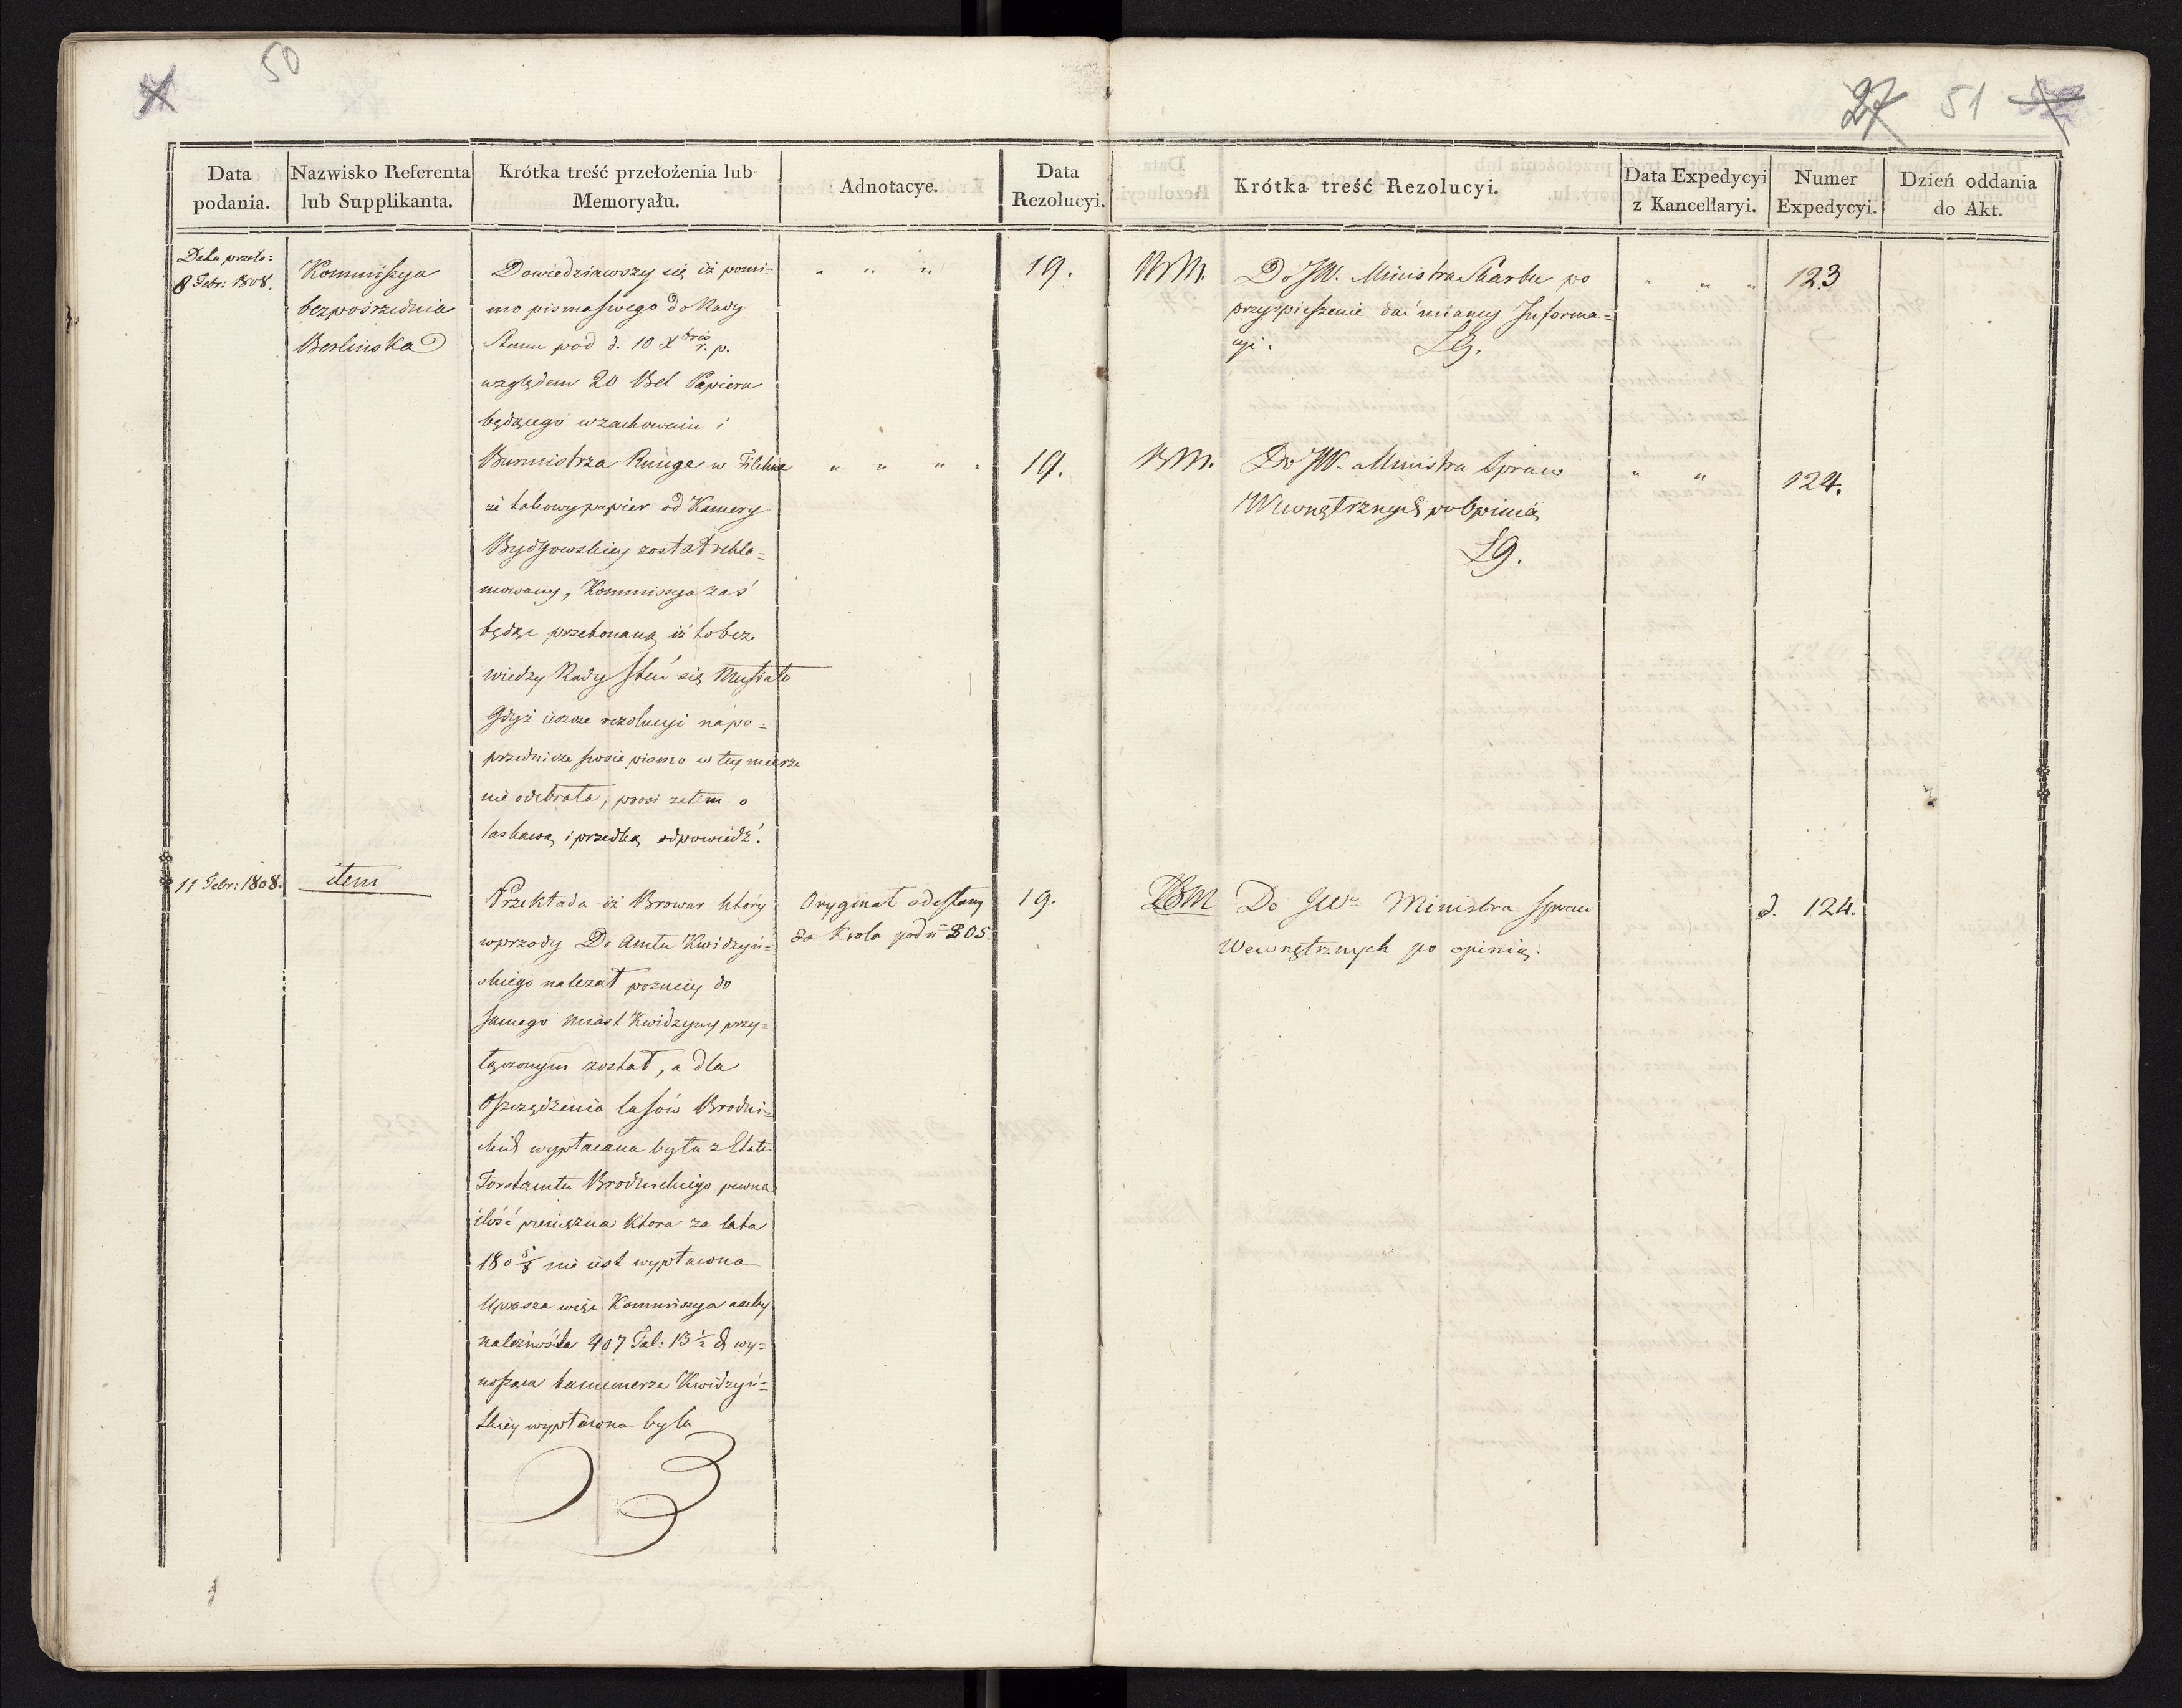 50
27 51
Data podania.
Nazwisko Referenta lub Supplikanta.
Krótka treść przełożenia lub Memoryału.
Adnotacye.
Data Rezolucyi.
Krótka treść Rezolucyi.
Data Expedycyi z Kancellaryi.
Numer Expedycyi.
Dzień oddania do Akt.
Data przeło:
8 Febr: 1808.
Kommissya
bezpośrzednia
Berlinska
Dowiedziawszy się iż pomi-
mo pisma swego do Rady
Stanu pod d. 10 Xbris r. p.
względem 20 Bel Papieru
będącego w zachowaniu i
Burmistrza Runge w Filehne
iż takowy papier od Kamery
Bydgowskiey został rekla=
mowany, Kommissya zaś
będąc przekonaną iż to bez
wiedzy Rady stać się musiało
Gdyż ieszcze rezolucyi na po=
przednicze swoie pismo w tey mierze
nie odebrała, prosi zatem o
łaskawą i prędką odpowiedź.
" " "
19.
BM.
Do JW. Ministra Skarbu po
przyspieszenie dać mianey Informa=
cyi.
Lg.
" " "
123
" " " "
19.
BM.
Do JW. Ministra Spraw
Wewnętrznych po Opinią
Lg.
" "
124.
11 Febr: 1808.
item
Przekłada iż Browar który
wprzody Do Amtu Kwidzyń=
skiego należał pozniey do
samego miast Kwidzyny przy=
łączonym został, a dla
Oszczędzenia lasów Brodni=
ckich wypłacana była z Etatu
Forstamtu Brodnickiego pewna
ilość pieniężna ktora za lata
180 5/8 nie iest wypłacona
Uprasza więc Kommissya azeby
należność ta 407 Tal: 13 1/2 d wy=
nosząca kammerze Kwidzyń=
skiey wypłacona była
Oryginał odesłany
do Krola pod n= 305.
19.
BM
Do JW= Ministra Spraw
Wewnętrznych po opinią.
d. 124.